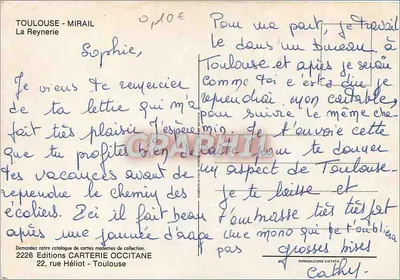 TOULOUSE - MIRAIL
La Reynerie
0,10€
Sophie,
Je viens te remercier
de ta lettre qui m'a
fait très plaisir. J'espère
que tu profites bien de
tes vacances avant de
reprendre le chemin des
écoliers. Ici il fait beau
après une journée d'orage
Demandez notre catalogue de cartes modernes de collection.
2226 Editions CARTERIE OCCITANE
22, rue Héliot - Toulouse
Pour ma part, je travail
le dans un bureau à
Toulouse et après je serai
comme toi c'est à dire je
reprendrai mon cartable,
pour suivre le même che-
min. Je t'envoie cette
carte pour te donner
un aspect de Toulouse.
Je te laisse et
t'embrasse très très fort
une mono qui ne t'oubliera
pas grosses bises
REPRODUCTION INTERDITE
Cathy.
CPARHIU